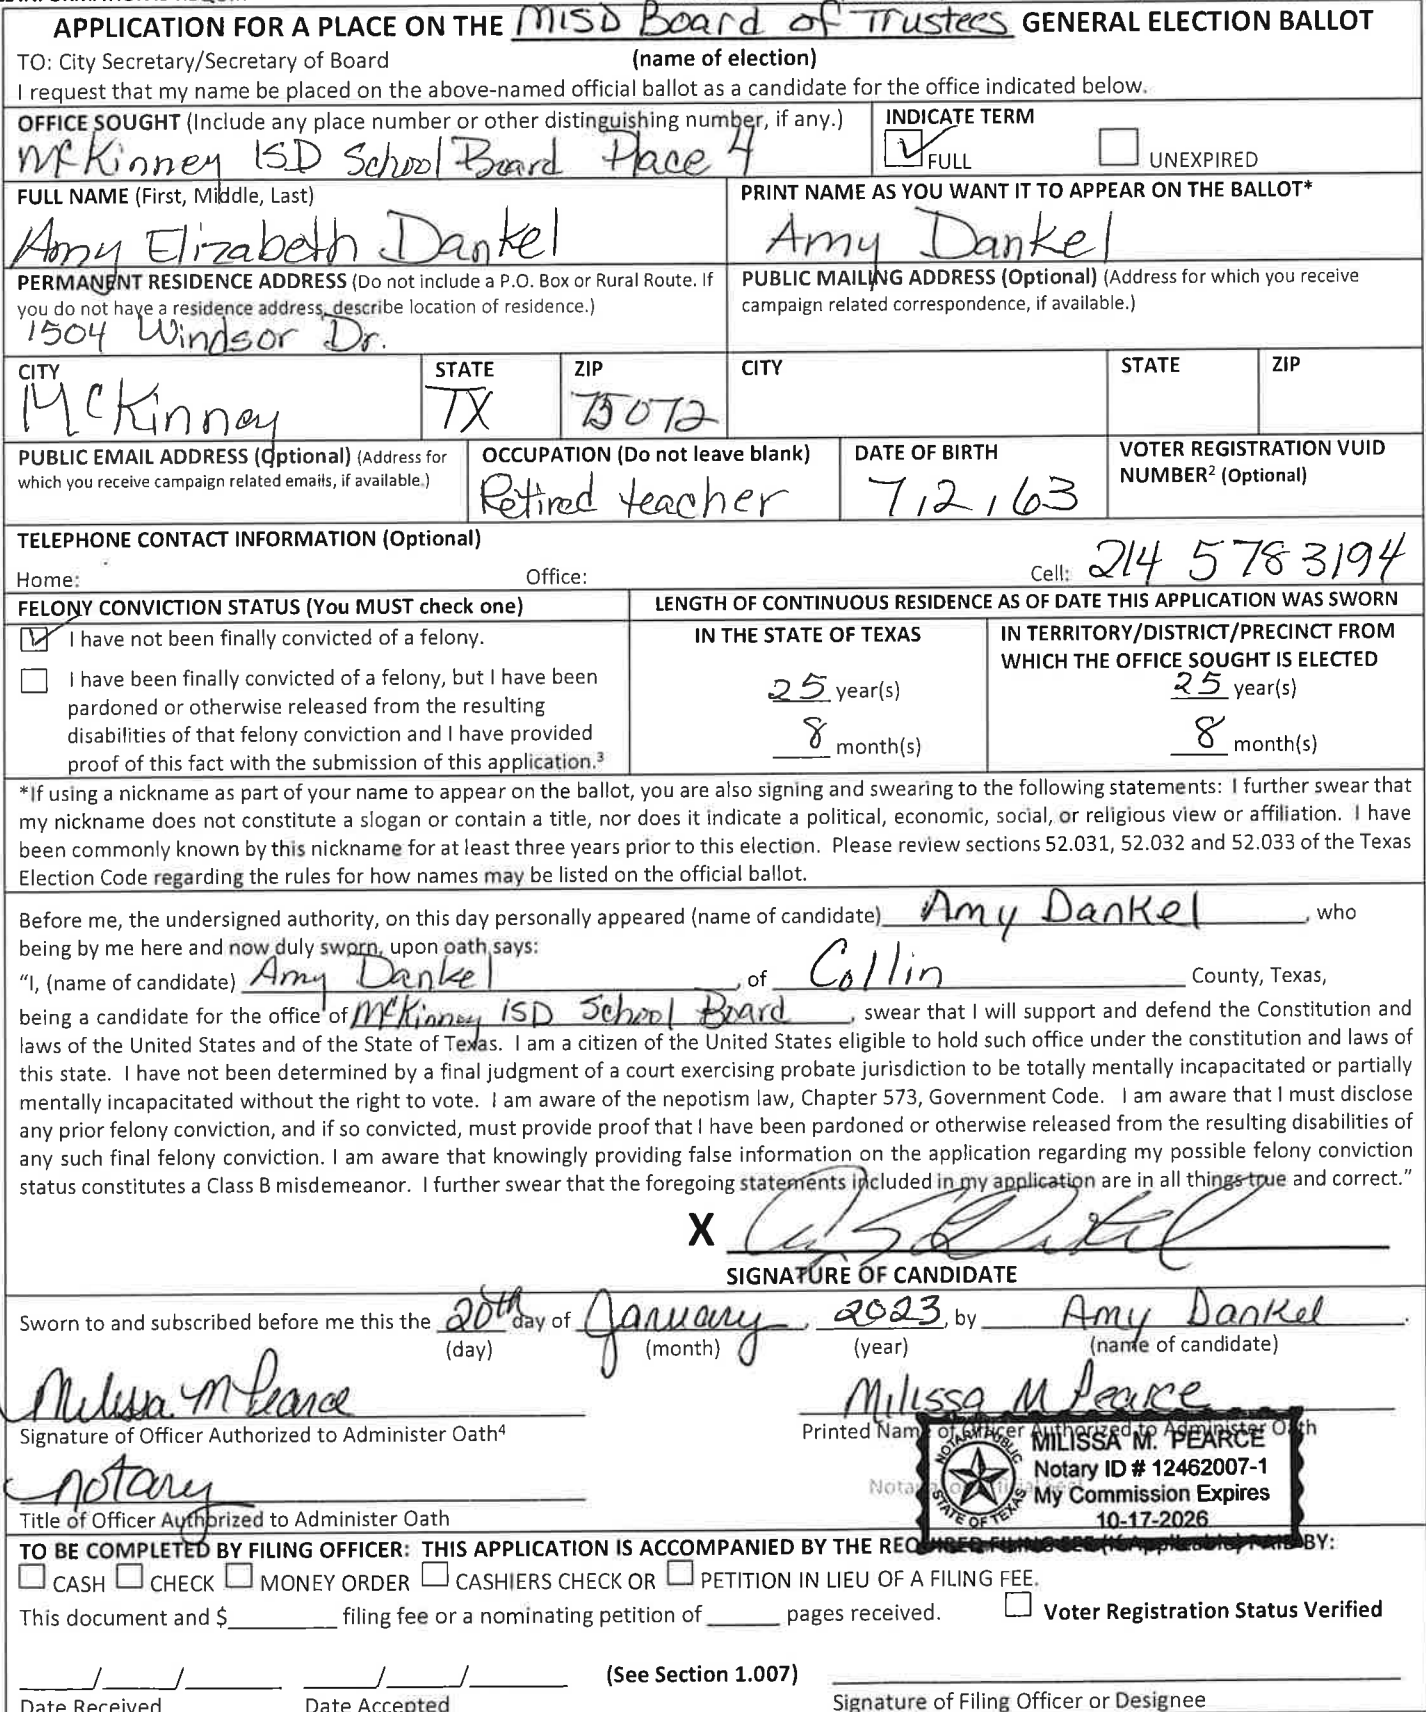 APPLICATION FOR A PLACE ON THE MISD Board of Trustees GENERAL ELECTION BALLOT
TO: City Secretary/Secretary of Board (name of election)
I request that my name be placed on the above-named official ballot as a candidate for the office indicated below.
OFFICE SOUGHT (Include any place number or other distinguishing number, if any.)
McKinney ISD School Board Place 4
INDICATE TERM
FULL UNEXPIRED
FULL NAME (First, Middle, Last)
Amy Elizabeth Dankel
PRINT NAME AS YOU WANT IT TO APPEAR ON THE BALLOT*
Amy Dankel
PERMANENT RESIDENCE ADDRESS (Do not include a P.O. Box or Rural Route. If
you do not have a residence address, describe location of residence.)
1504 Windsor Dr.
PUBLIC MAILING ADDRESS (Optional) (Address for which you receive
campaign related correspondence, if available.)
CITY STATE ZIP CITY STATE ZIP
McKinney TX 75072
PUBLIC EMAIL ADDRESS (Optional) (Address for
which you receive campaign related emails, if available.)
OCCUPATION (Do not leave blank)
Retired teacher
DATE OF BIRTH
7, 2, 63
VOTER REGISTRATION VUID
NUMBER² (Optional)
TELEPHONE CONTACT INFORMATION (Optional)
Home: Office: Cell: 214 578 3194
FELONY CONVICTION STATUS (You MUST check one)
I have not been finally convicted of a felony.
I have been finally convicted of a felony, but I have been
pardoned or otherwise released from the resulting
disabilities of that felony conviction and I have provided
proof of this fact with the submission of this application.³
LENGTH OF CONTINUOUS RESIDENCE AS OF DATE THIS APPLICATION WAS SWORN
IN THE STATE OF TEXAS
25 year(s)
8 month(s)
IN TERRITORY/DISTRICT/PRECINCT FROM
WHICH THE OFFICE SOUGHT IS ELECTED
25 year(s)
8 month(s)
*If using a nickname as part of your name to appear on the ballot, you are also signing and swearing to the following statements: I further swear that
my nickname does not constitute a slogan or contain a title, nor does it indicate a political, economic, social, or religious view or affiliation. I have
been commonly known by this nickname for at least three years prior to this election. Please review sections 52.031, 52.032 and 52.033 of the Texas
Election Code regarding the rules for how names may be listed on the official ballot.
Before me, the undersigned authority, on this day personally appeared (name of candidate) Amy Dankel, who
being by me here and now duly sworn, upon oath says:
"I, (name of candidate) Amy Dankel, of Collin County, Texas,
being a candidate for the office of McKinney ISD School Board, swear that I will support and defend the Constitution and
laws of the United States and of the State of Texas. I am a citizen of the United States eligible to hold such office under the constitution and laws of
this state. I have not been determined by a final judgment of a court exercising probate jurisdiction to be totally mentally incapacitated or partially
mentally incapacitated without the right to vote. I am aware of the nepotism law, Chapter 573, Government Code. I am aware that I must disclose
any prior felony conviction, and if so convicted, must provide proof that I have been pardoned or otherwise released from the resulting disabilities of
any such final felony conviction. I am aware that knowingly providing false information on the application regarding my possible felony conviction
status constitutes a Class B misdemeanor. I further swear that the foregoing statements included in my application are in all things true and correct."
X
SIGNATURE OF CANDIDATE
Sworn to and subscribed before me this the 20th day of January, 2023, by Amy Dankel.
(day) (month) (year) (name of candidate)
Milissa M Pearce Milissa M Pearce
Signature of Officer Authorized to Administer Oath⁴ Printed Name of Officer Authorized to Administer Oath
NOTARY PUBLIC
STATE OF TEXAS
MILISSA M. PEARCE
Notary ID # 12462007-1
My Commission Expires
10-17-2026
notary
Title of Officer Authorized to Administer Oath
TO BE COMPLETED BY FILING OFFICER: THIS APPLICATION IS ACCOMPANIED BY THE REQUIRED FILING FEE (If Applicable) PAID BY:
CASH CHECK MONEY ORDER CASHIERS CHECK OR PETITION IN LIEU OF A FILING FEE.
This document and $ filing fee or a nominating petition of pages received. Voter Registration Status Verified
/ / / / (See Section 1.007)
Date Received Date Accepted Signature of Filing Officer or Designee